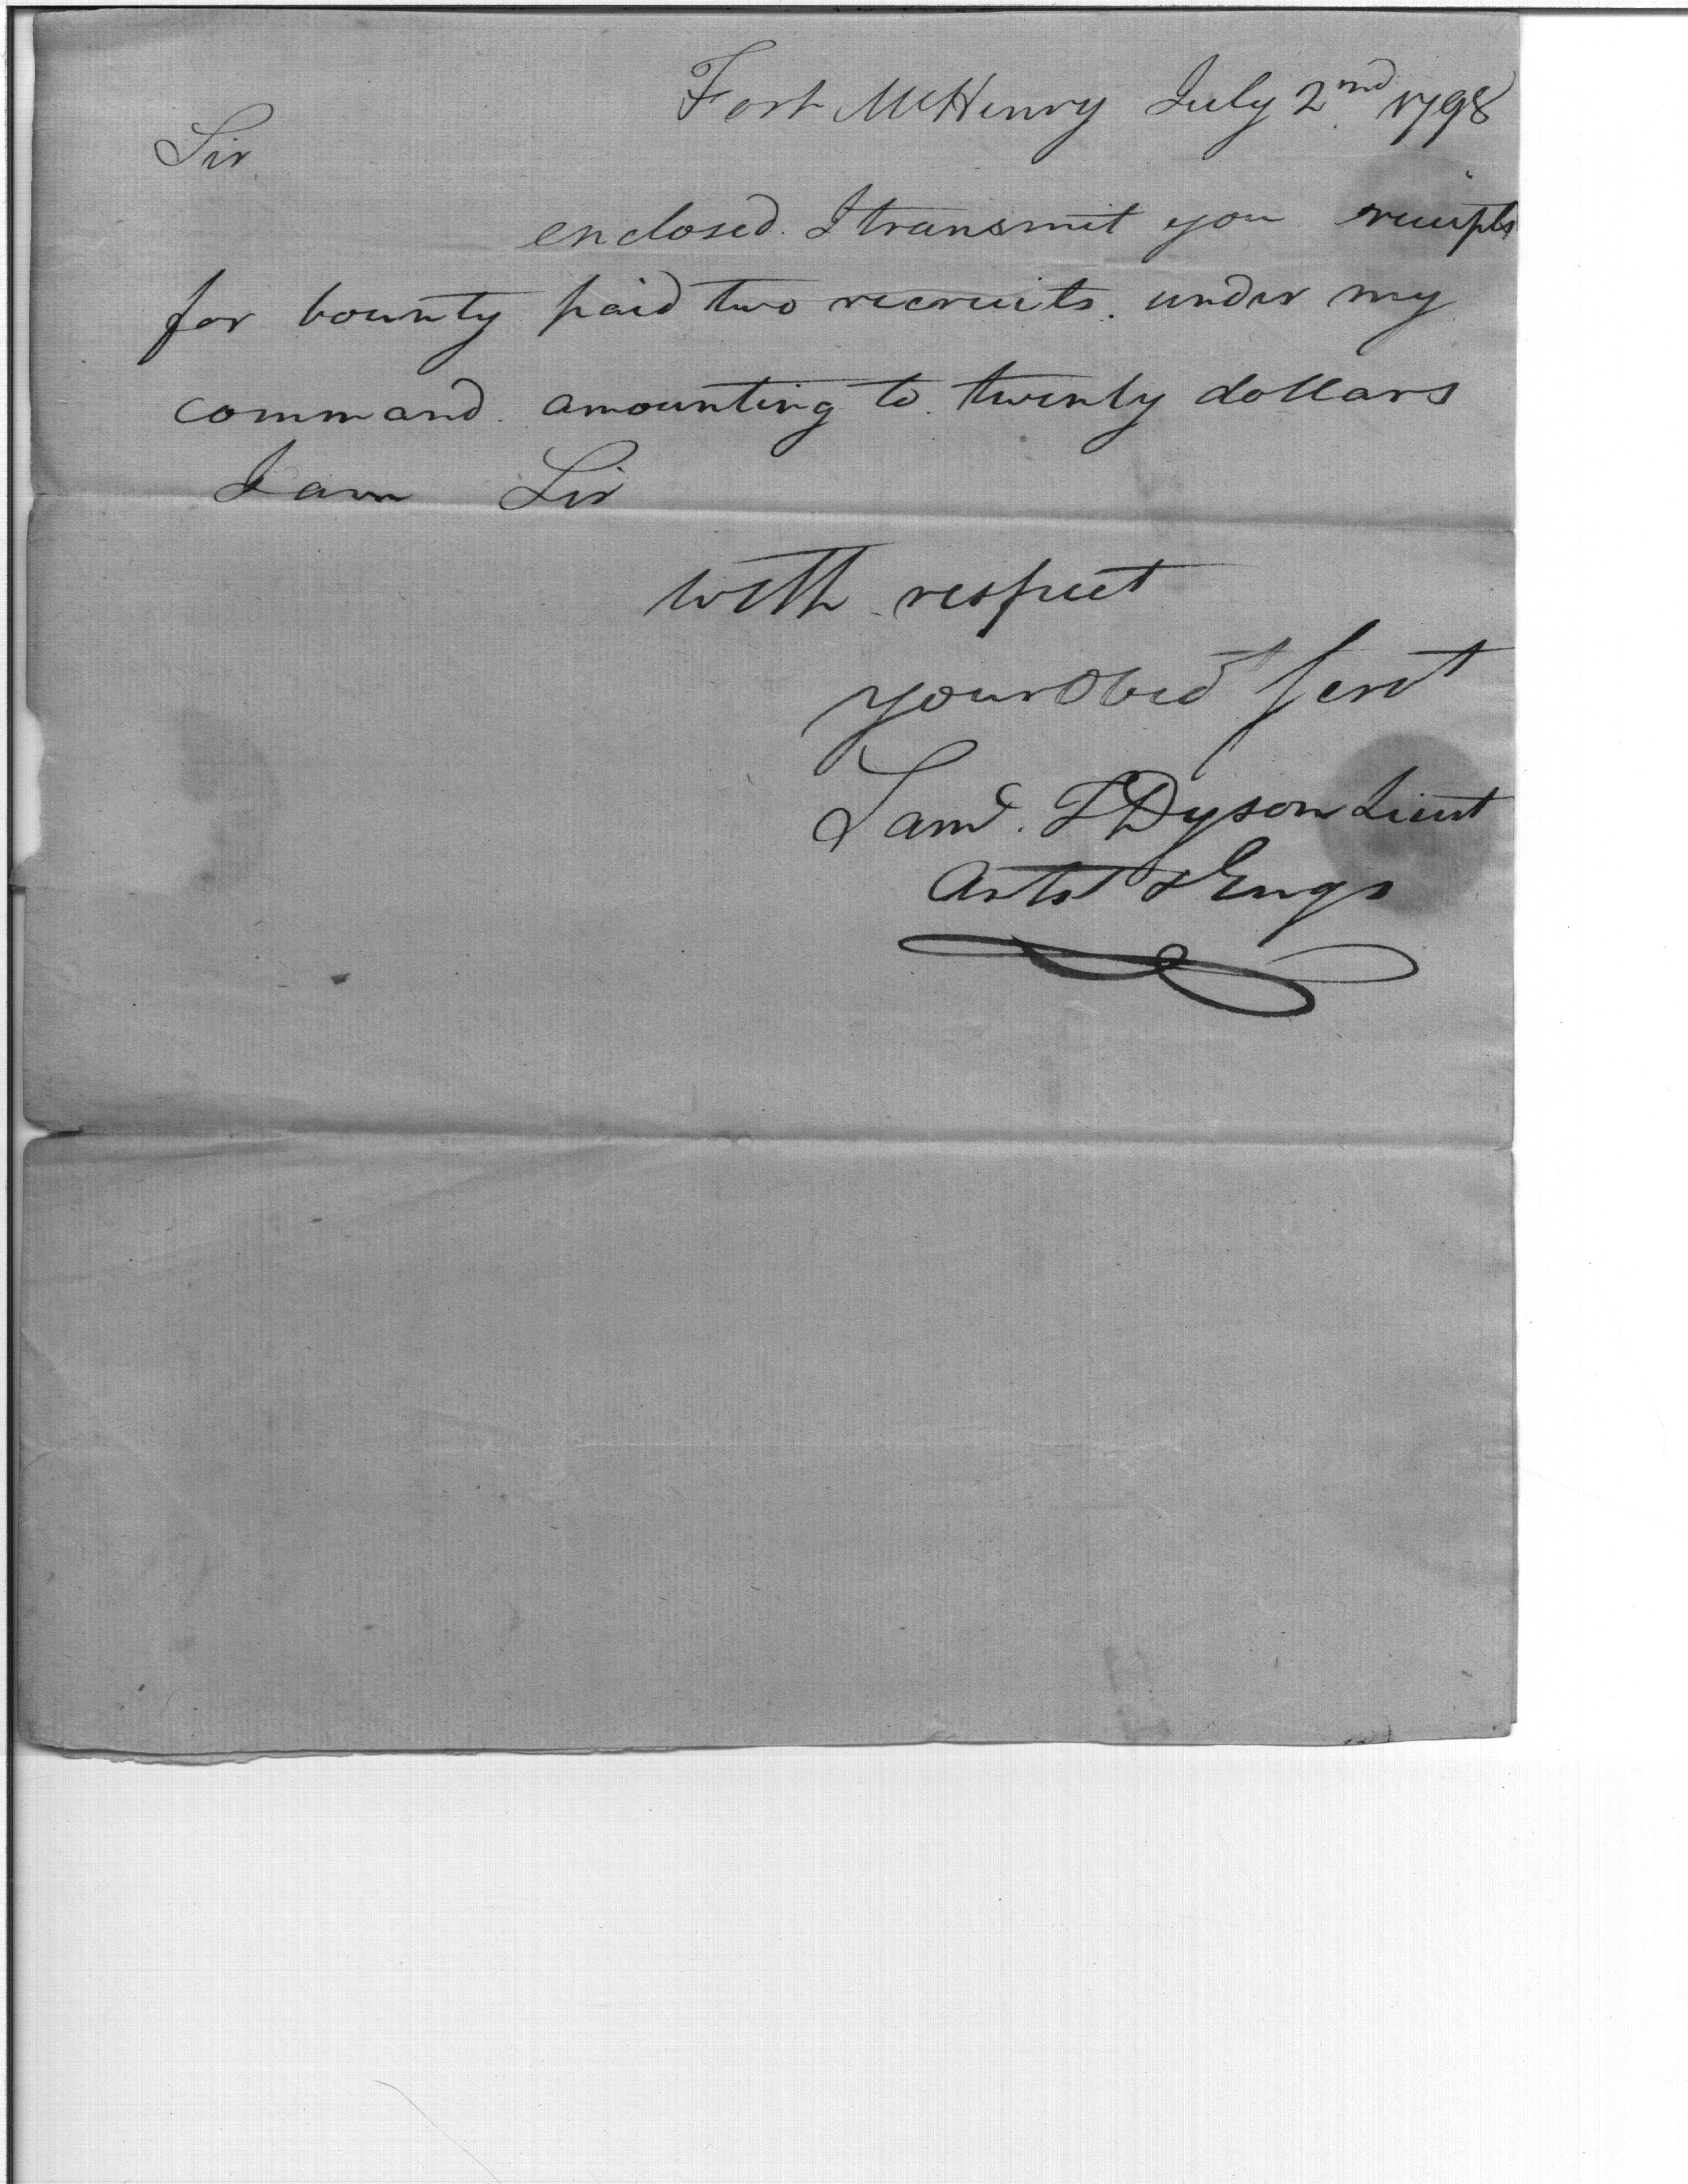 Fort McHenry July 2nd 1798
Sir
enclosed. I transmit you receipts
for bounty paid two recruits. under my
command. amounting to twenty dollars
I am Sir
with respect
your Obedt Servt
Saml. T Dyson Lieut
Arts & Engs